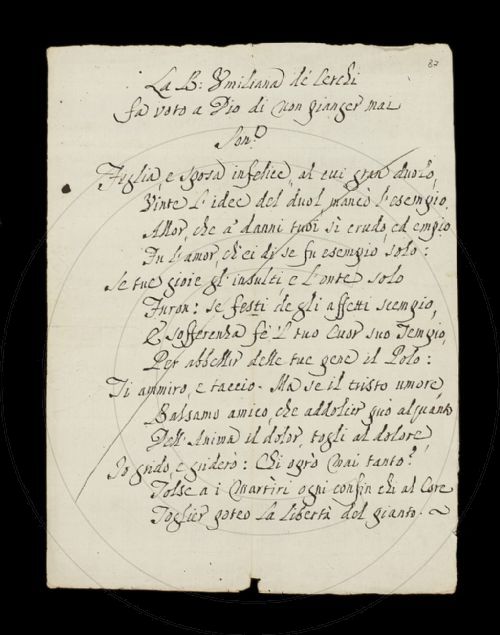 87
La B: Umiliana de' Cerchi
fa voto a Dio di non pianger mai
Son.º
Figlia, e sposa infelice, al cui gran duolo,
Vinte l'idee del duol, mancò l'esempio,
Allor, che a' danni tuoi sì crudo, ed empio
Fu l'amor, ch'ei di se fu esempio solo:
Se tue gioie gl'insulti e l'onte solo
Furon: se festi degli affetti scempio,
E sofferenza fe' 'l tuo Cuor suo Tempio,
Per abbellir delle tue pene il Polo:
Ti ammiro, e taccio. Ma se il tristo umore,
Balsamo amico, che addolcir può alquanto
Dell'Anima il dolor, togli al dolore,
Io grido, e griderò: Chi osò mai tanto?
Tolse a i Martìri ogni confin chi al Core
Toglier poteo la libertà del pianto.